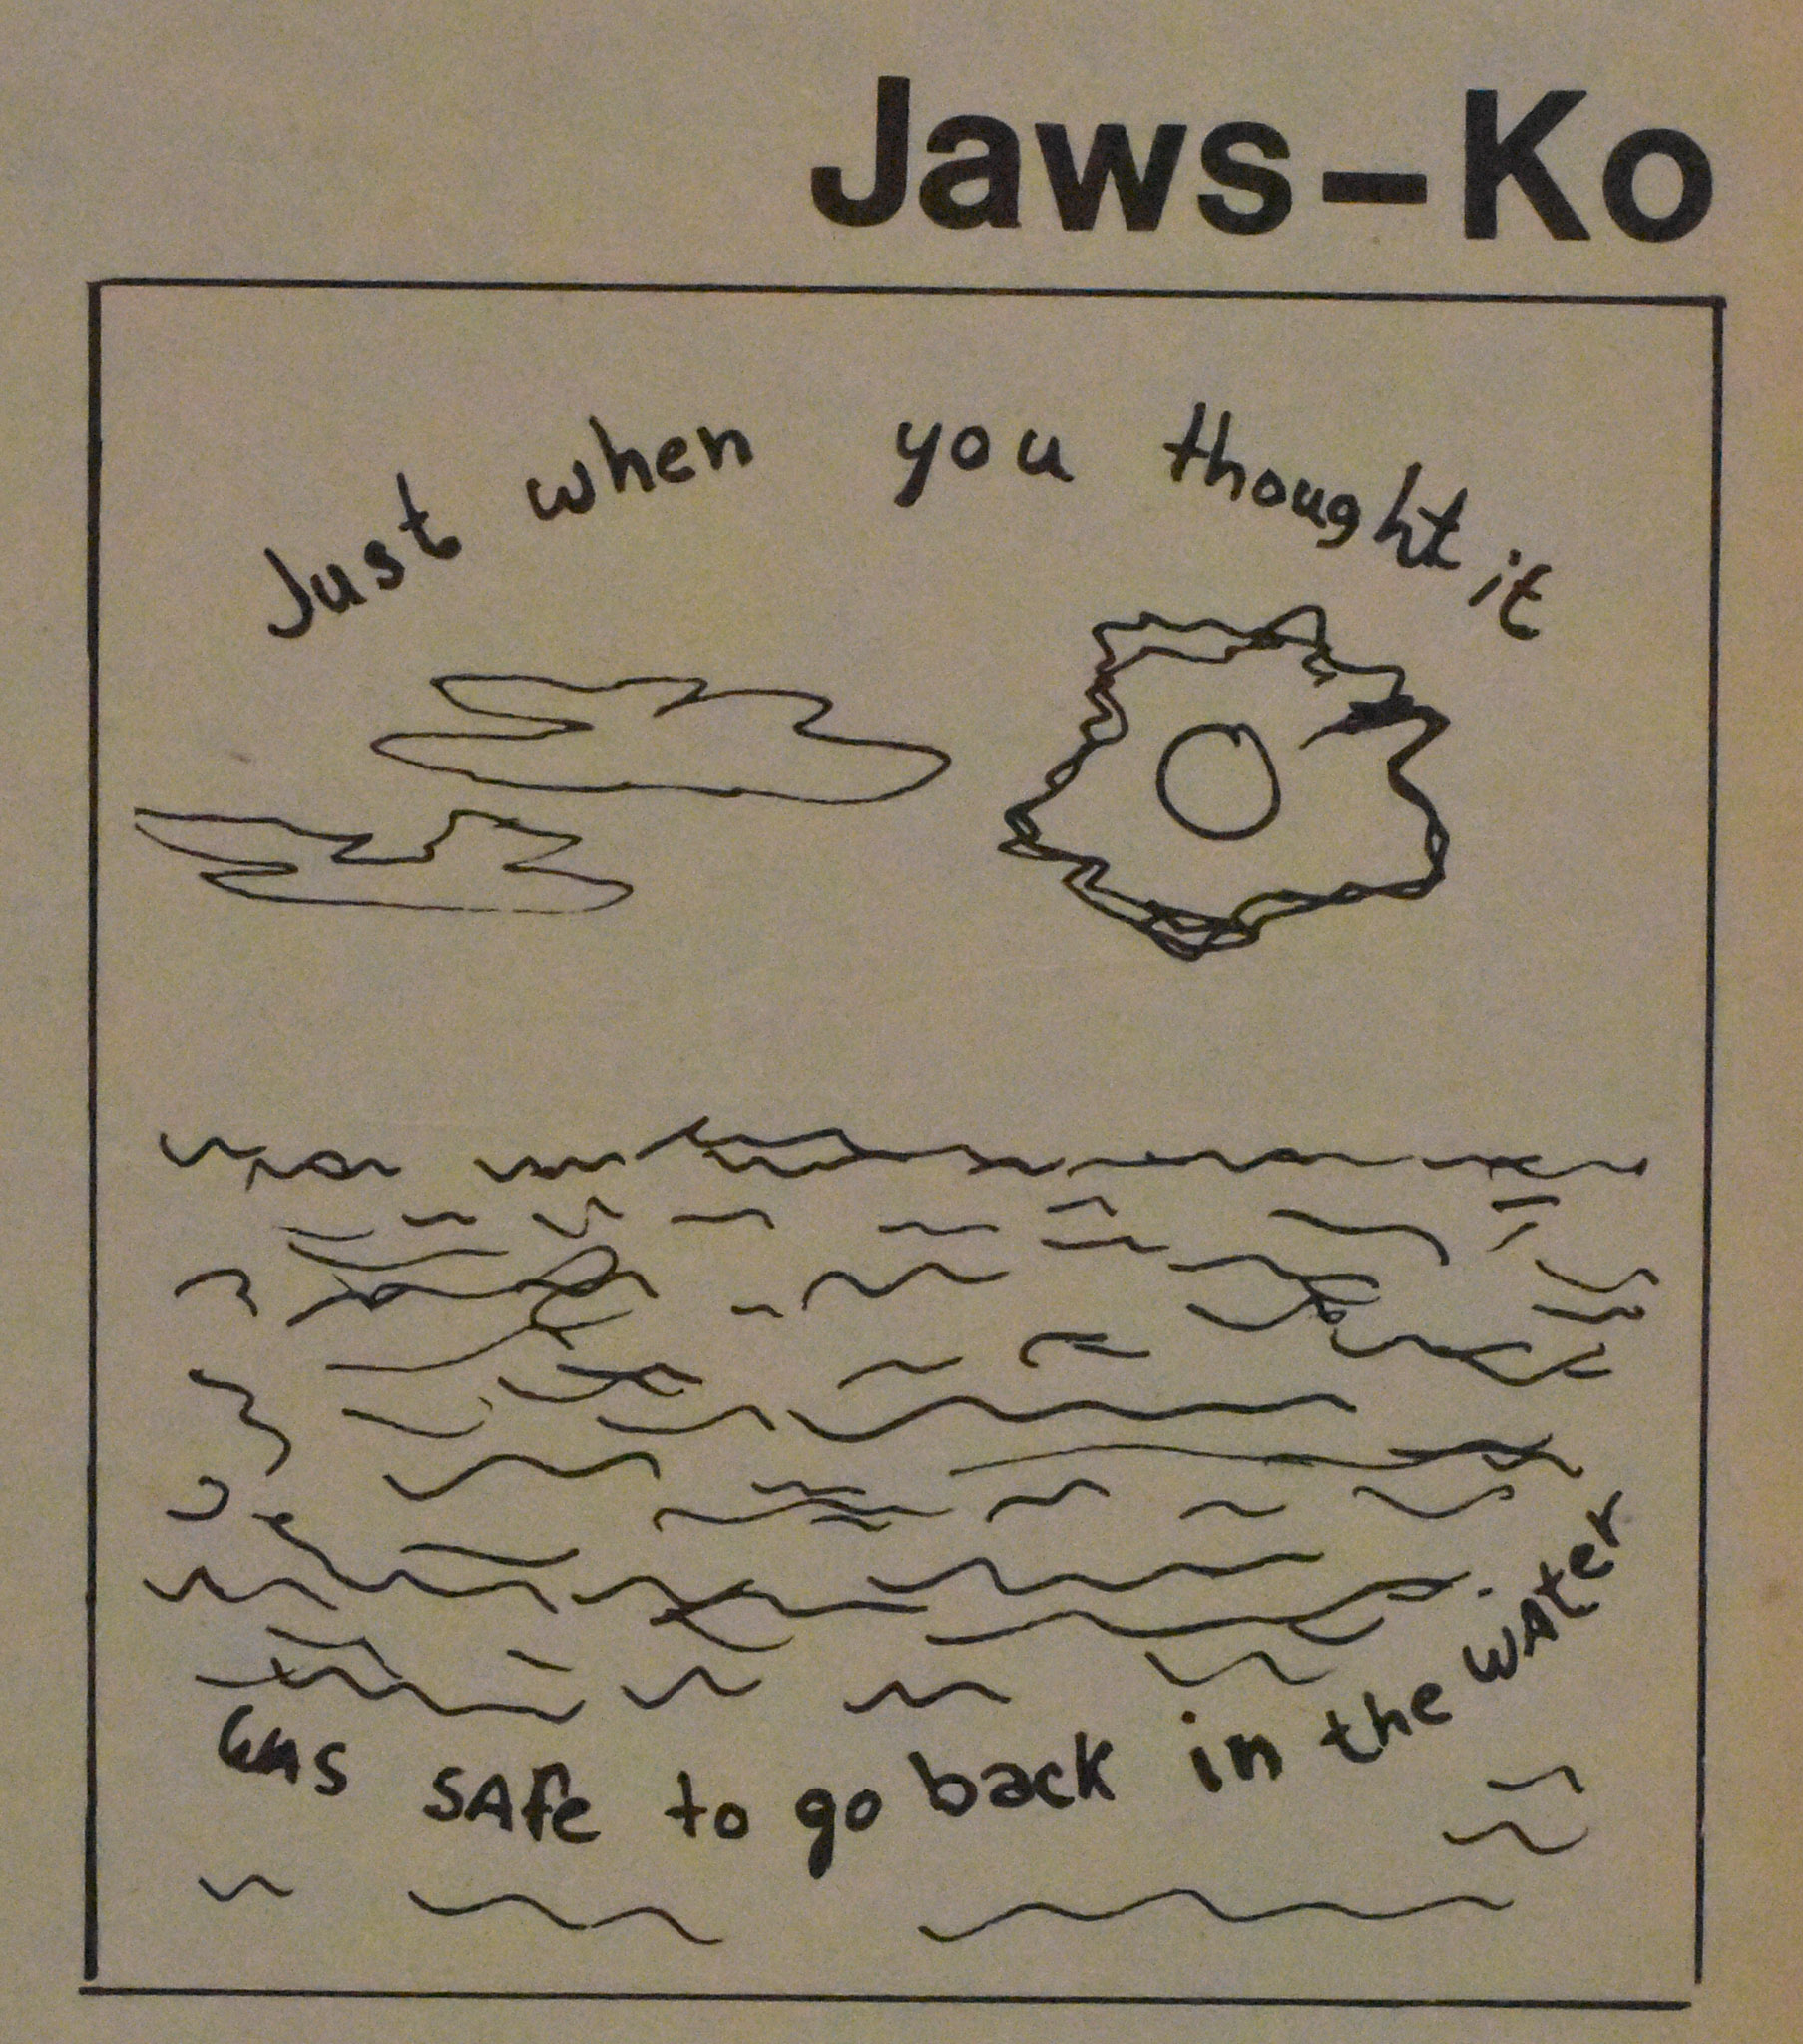 Jaws-Ko
Just when you thought it
was SAfe to go back in the wAter